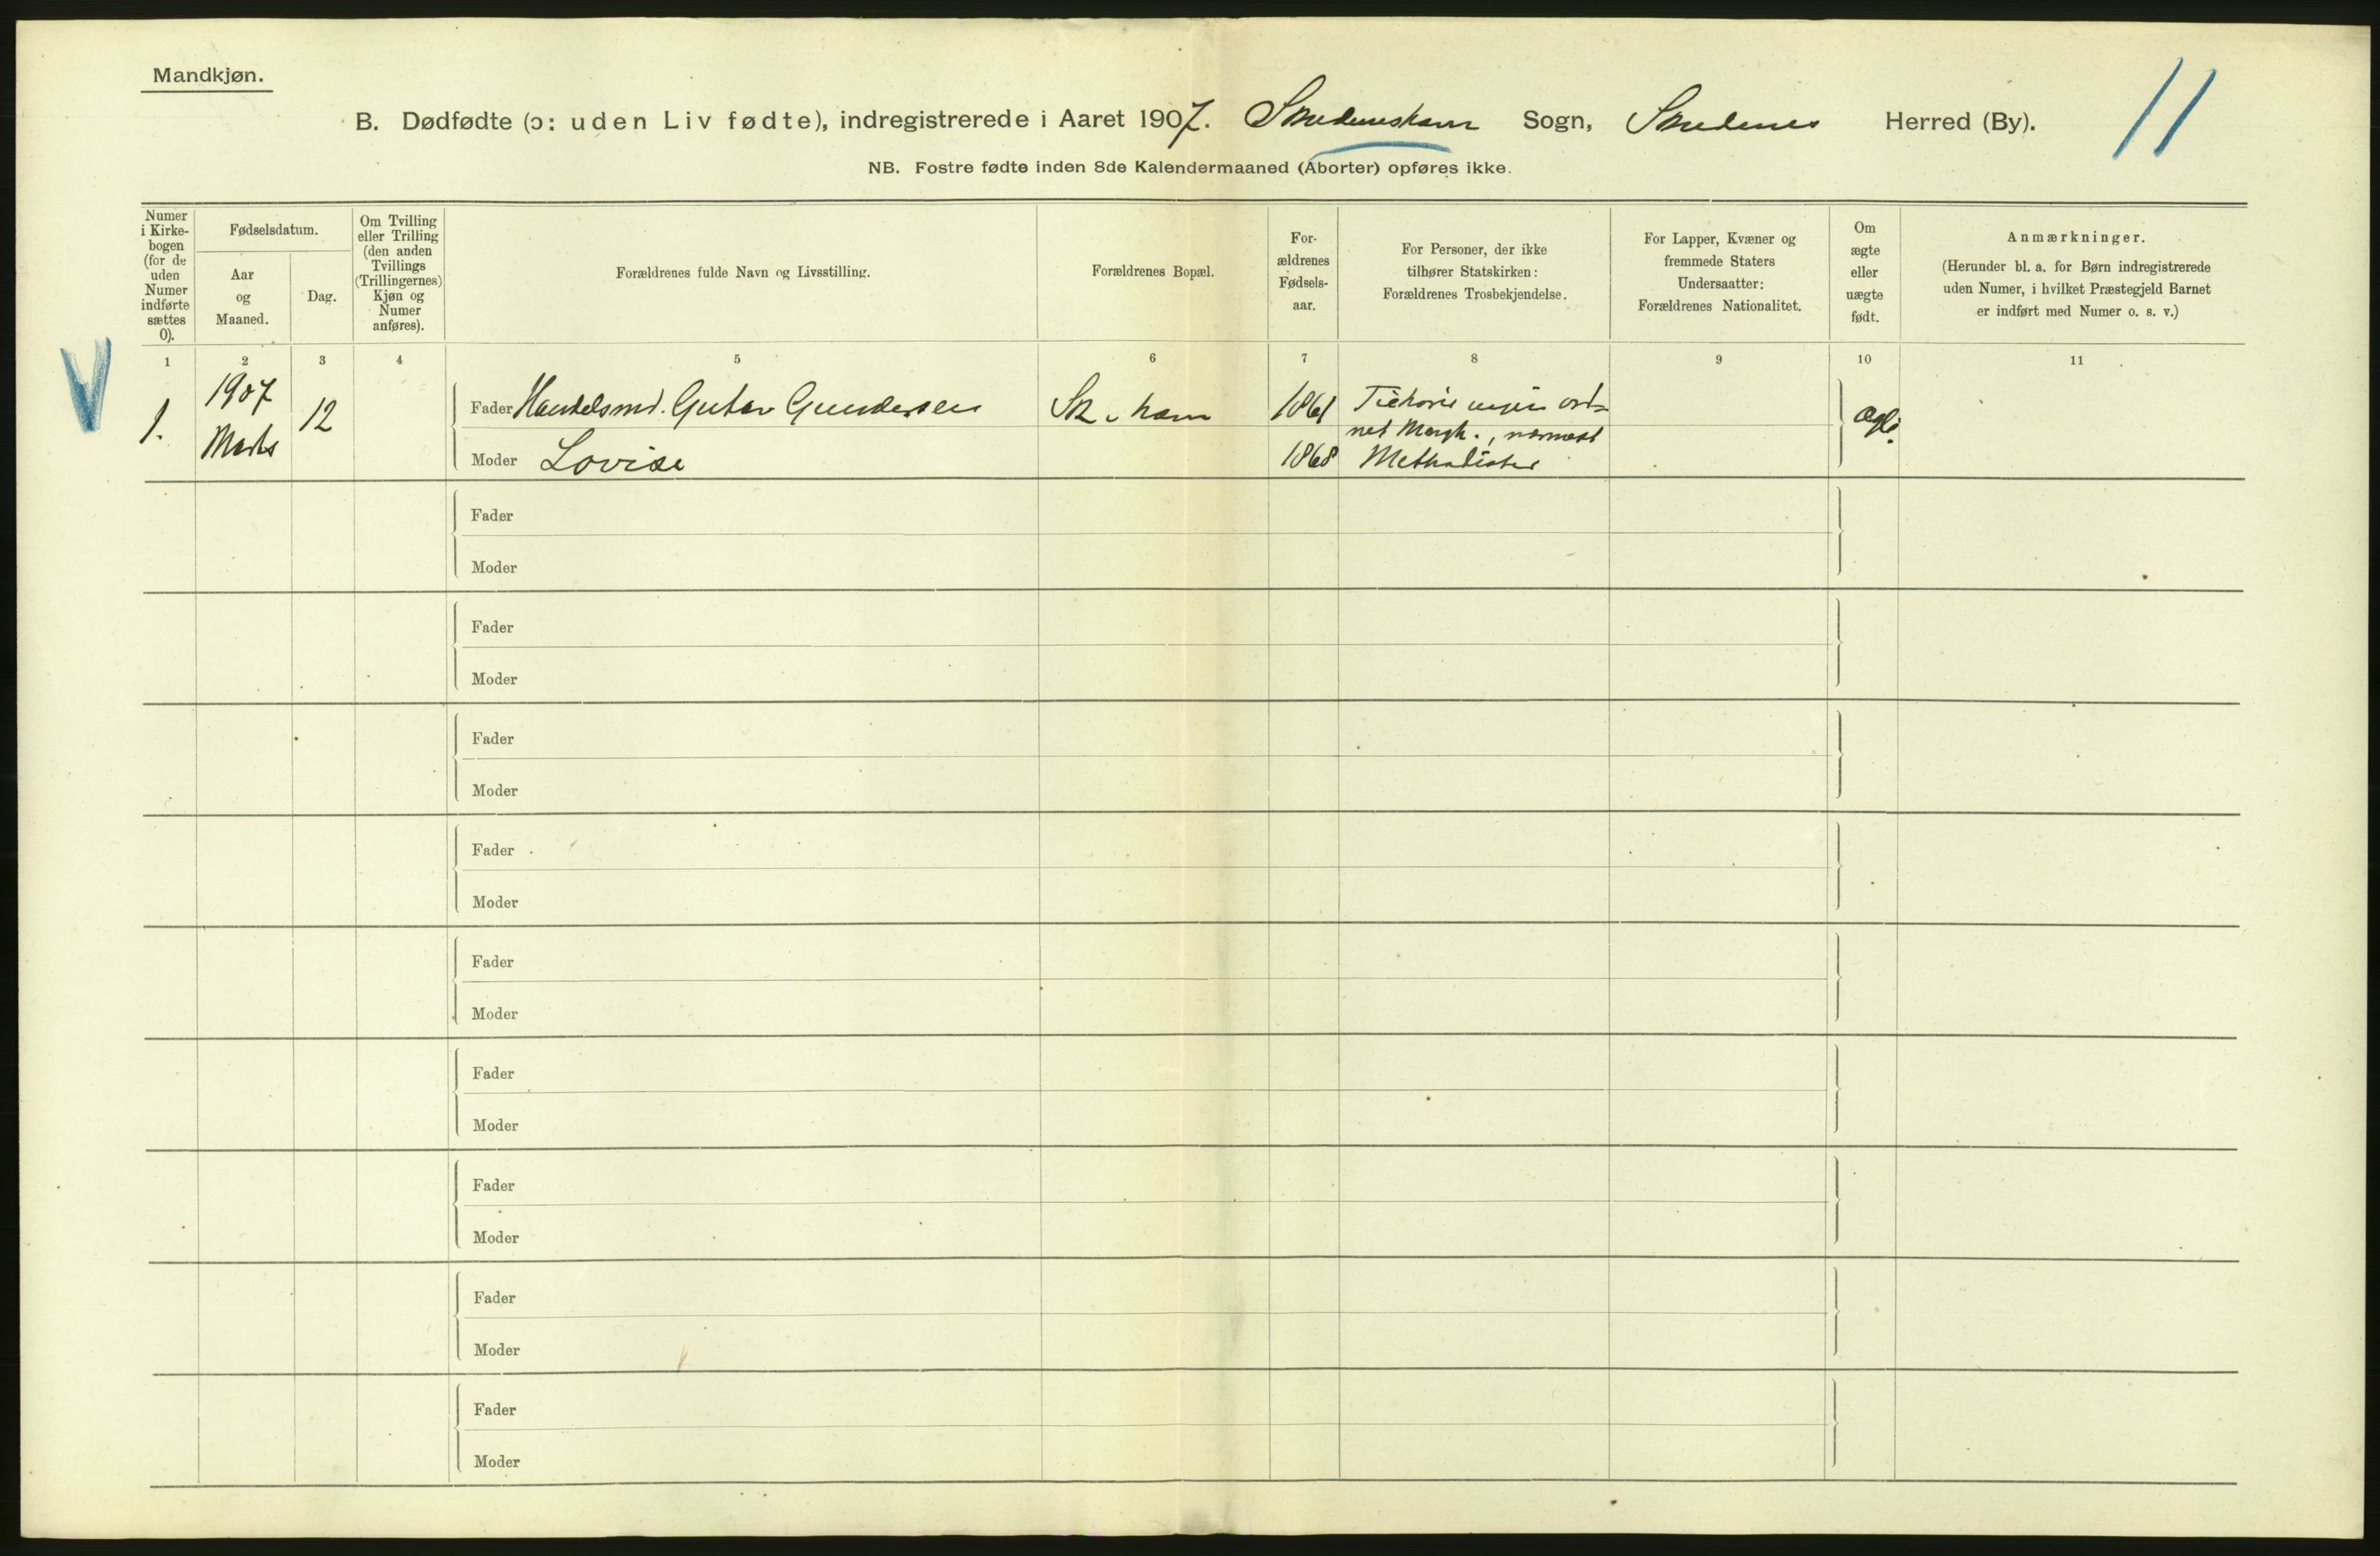 Mandkjøn.
11
B. Dødfødte (ɔ: uden Liv fødte), indregistrerede i Aaret 1907. Skudeneshavn Sogn, Skudenes Herred (By).
NB. Fostre fødte inden 8de Kalendermaaned (Aborter) opføres ikke.
Numer
i Kirke-
bogen
(for de
uden
Numer
indførte
sættes
0).
Fødselsdatum.
Aar
og
Maaned.
Dag.
Om Tvilling
eller Trilling
(den anden
Tvillings
(Trillingernes)
Kjøn og
Numer
anføres).
Forældrenes fulde Navn og Livsstilling.
Forældrenes Bopæl.
For-
ældrenes
Fødsels-
aar.
For Personer, der ikke
tilhører Statskirken:
Forældrenes Trosbekjendelse.
For Lapper, Kvæner og
fremmede Staters
Undersaatter:
Forældrenes Nationalitet.
Om
ægte
eller
uægte
født.
Anmærkninger.
(Herunder bl. a. for Børn indregistrerede
uden Numer, i hvilket Præstegjeld Barnet
er indført med Numer o. s. v.)
1 2 3 4 5 6 7 8 9 10 11
1.
1907
Marts
12
Fader Handelsmd. Gustav Gundersen
Moder Lovise
Sk.havn
1861
1868
ord-
net Mengh., nærmest
Methodister
Ægte
Fader
Moder
Fader
Moder
Fader
Moder
Fader
Moder
Fader
Moder
Fader
Moder
Fader
Moder
Fader
Moder
Fader
Moder